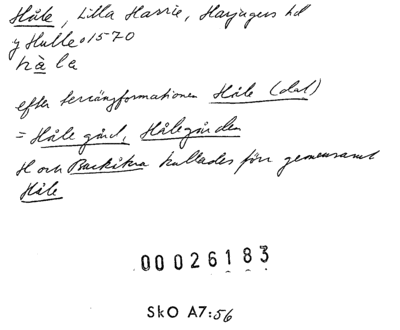 Håle, Lilla Harrie, Harjagers hd
y Hulle 1570
hàla
efter terrängformationen Håle (dal)
= Håle gård, Hålegården
H och Backåkra kallades förr gemensamt
Håle
00026183
SkO A7:56